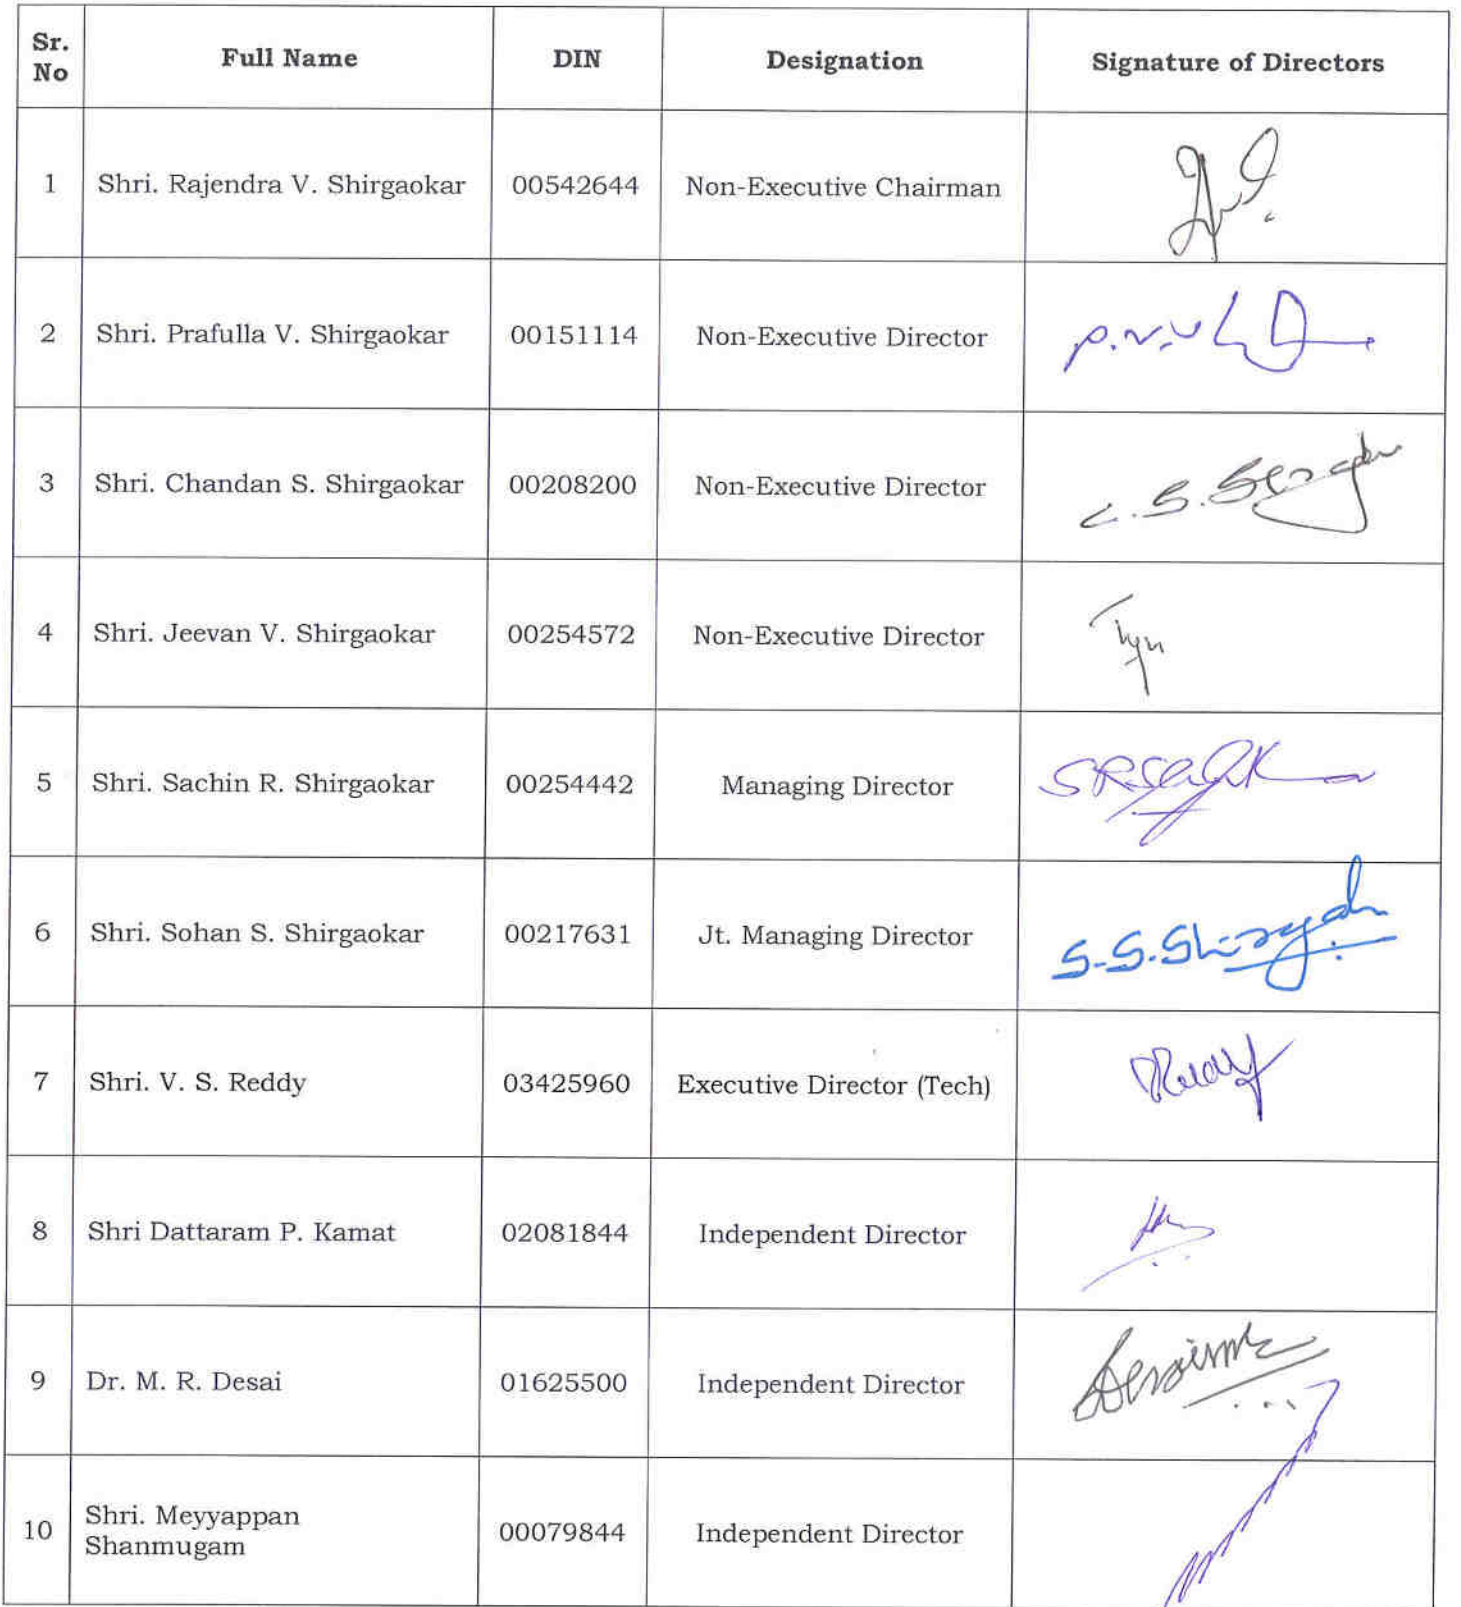 Sr. No Full Name DIN Designation Signature of Directors
1 Shri. Rajendra V. Shirgaokar 00542644 Non-Executive Chairman
2 Shri. Prafulla V. Shirgaokar 00151114 Non-Executive Director
3 Shri. Chandan S. Shirgaokar 00208200 Non-Executive Director
4 Shri. Jeevan V. Shirgaokar 00254572 Non-Executive Director
5 Shri. Sachin R. Shirgaokar 00254442 Managing Director
6 Shri. Sohan S. Shirgaokar 00217631 Jt. Managing Director
7 Shri. V. S. Reddy 03425960 Executive Director (Tech)
8 Shri Dattaram P. Kamat 02081844 Independent Director
9 Dr. M. R. Desai 01625500 Independent Director
10 Shri. Meyyappan Shanmugam 00079844 Independent Director